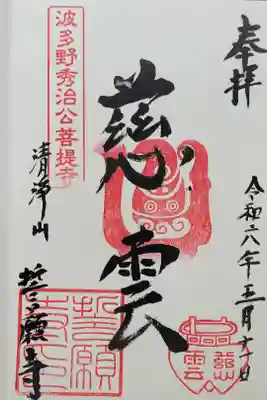 奉拝
令和六年五月六日
慈雲
波多野秀治公菩提寺
清浄山
誓願寺
誓願
寺印
慈雲